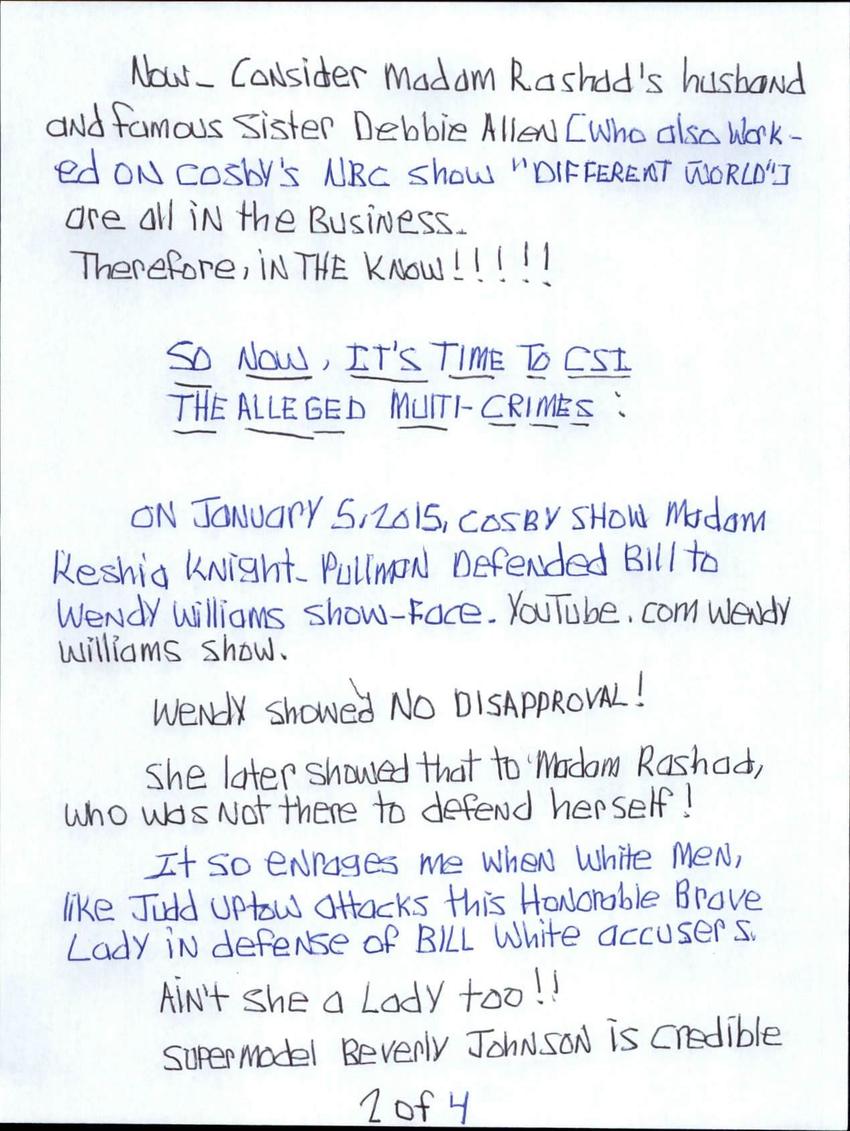 Now- Consider Madam Rashad's husband
and famous Sister Debbie Allen [Who also Work-
ed ON COSBY'S NBC Show "DIFFERENT WORLD"]
are all in the Business.
Therefore, IN THE KNOW!!!!!
SO NOW, IT'S TIME TO CSI
THE ALLEGED MULTI-CRIMES:
ON JANUARY 5, 2015, COSBY SHOW Madam
Keshia Knight-Pullman Defended Bill to
Wendy Williams show-Face. YouTube.com Wendy
Williams show.
WENDY showed NO DISAPPROVAL!
She later showed that to Madam Rashad,
who was Not there to defend herself!
It so enrages me when White Men,
like Judd Uptow attacks this Honorable Brave
Lady in defense of BILL White accusers.
AiN't she a Lady too!!
SUPERMODEL BEVERLY JOHNSON is credible
2 of 4